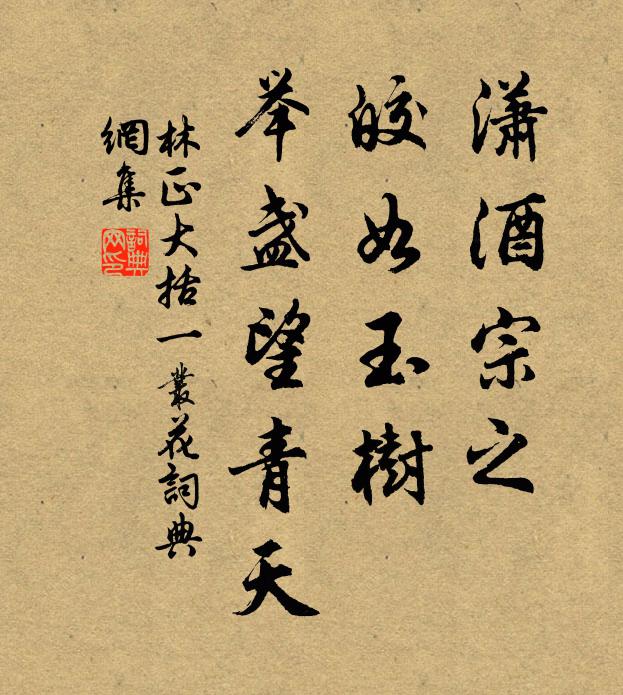 瀟酒宗之
皎如玉樹
举盏望青天
林正大括一叢花詞典
網集
詞典網印